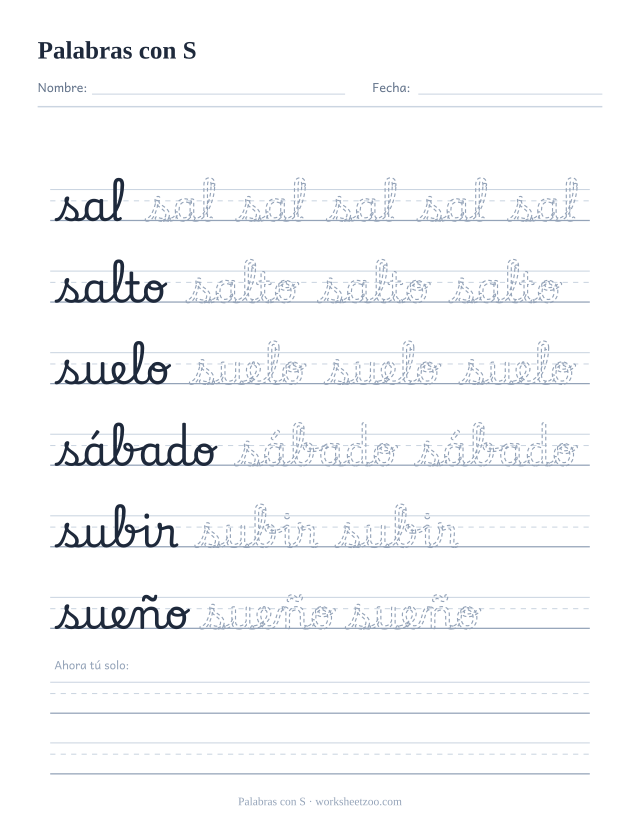 Palabras con S
Nombre: Fecha:
sal sal sal sal sal sal
salto salto salto salto
suelo suelo suelo suelo
sábado sábado sábado
subir subir subir
sueño sueño sueño
Ahora tú solo:
Palabras con S · worksheetzoo.com